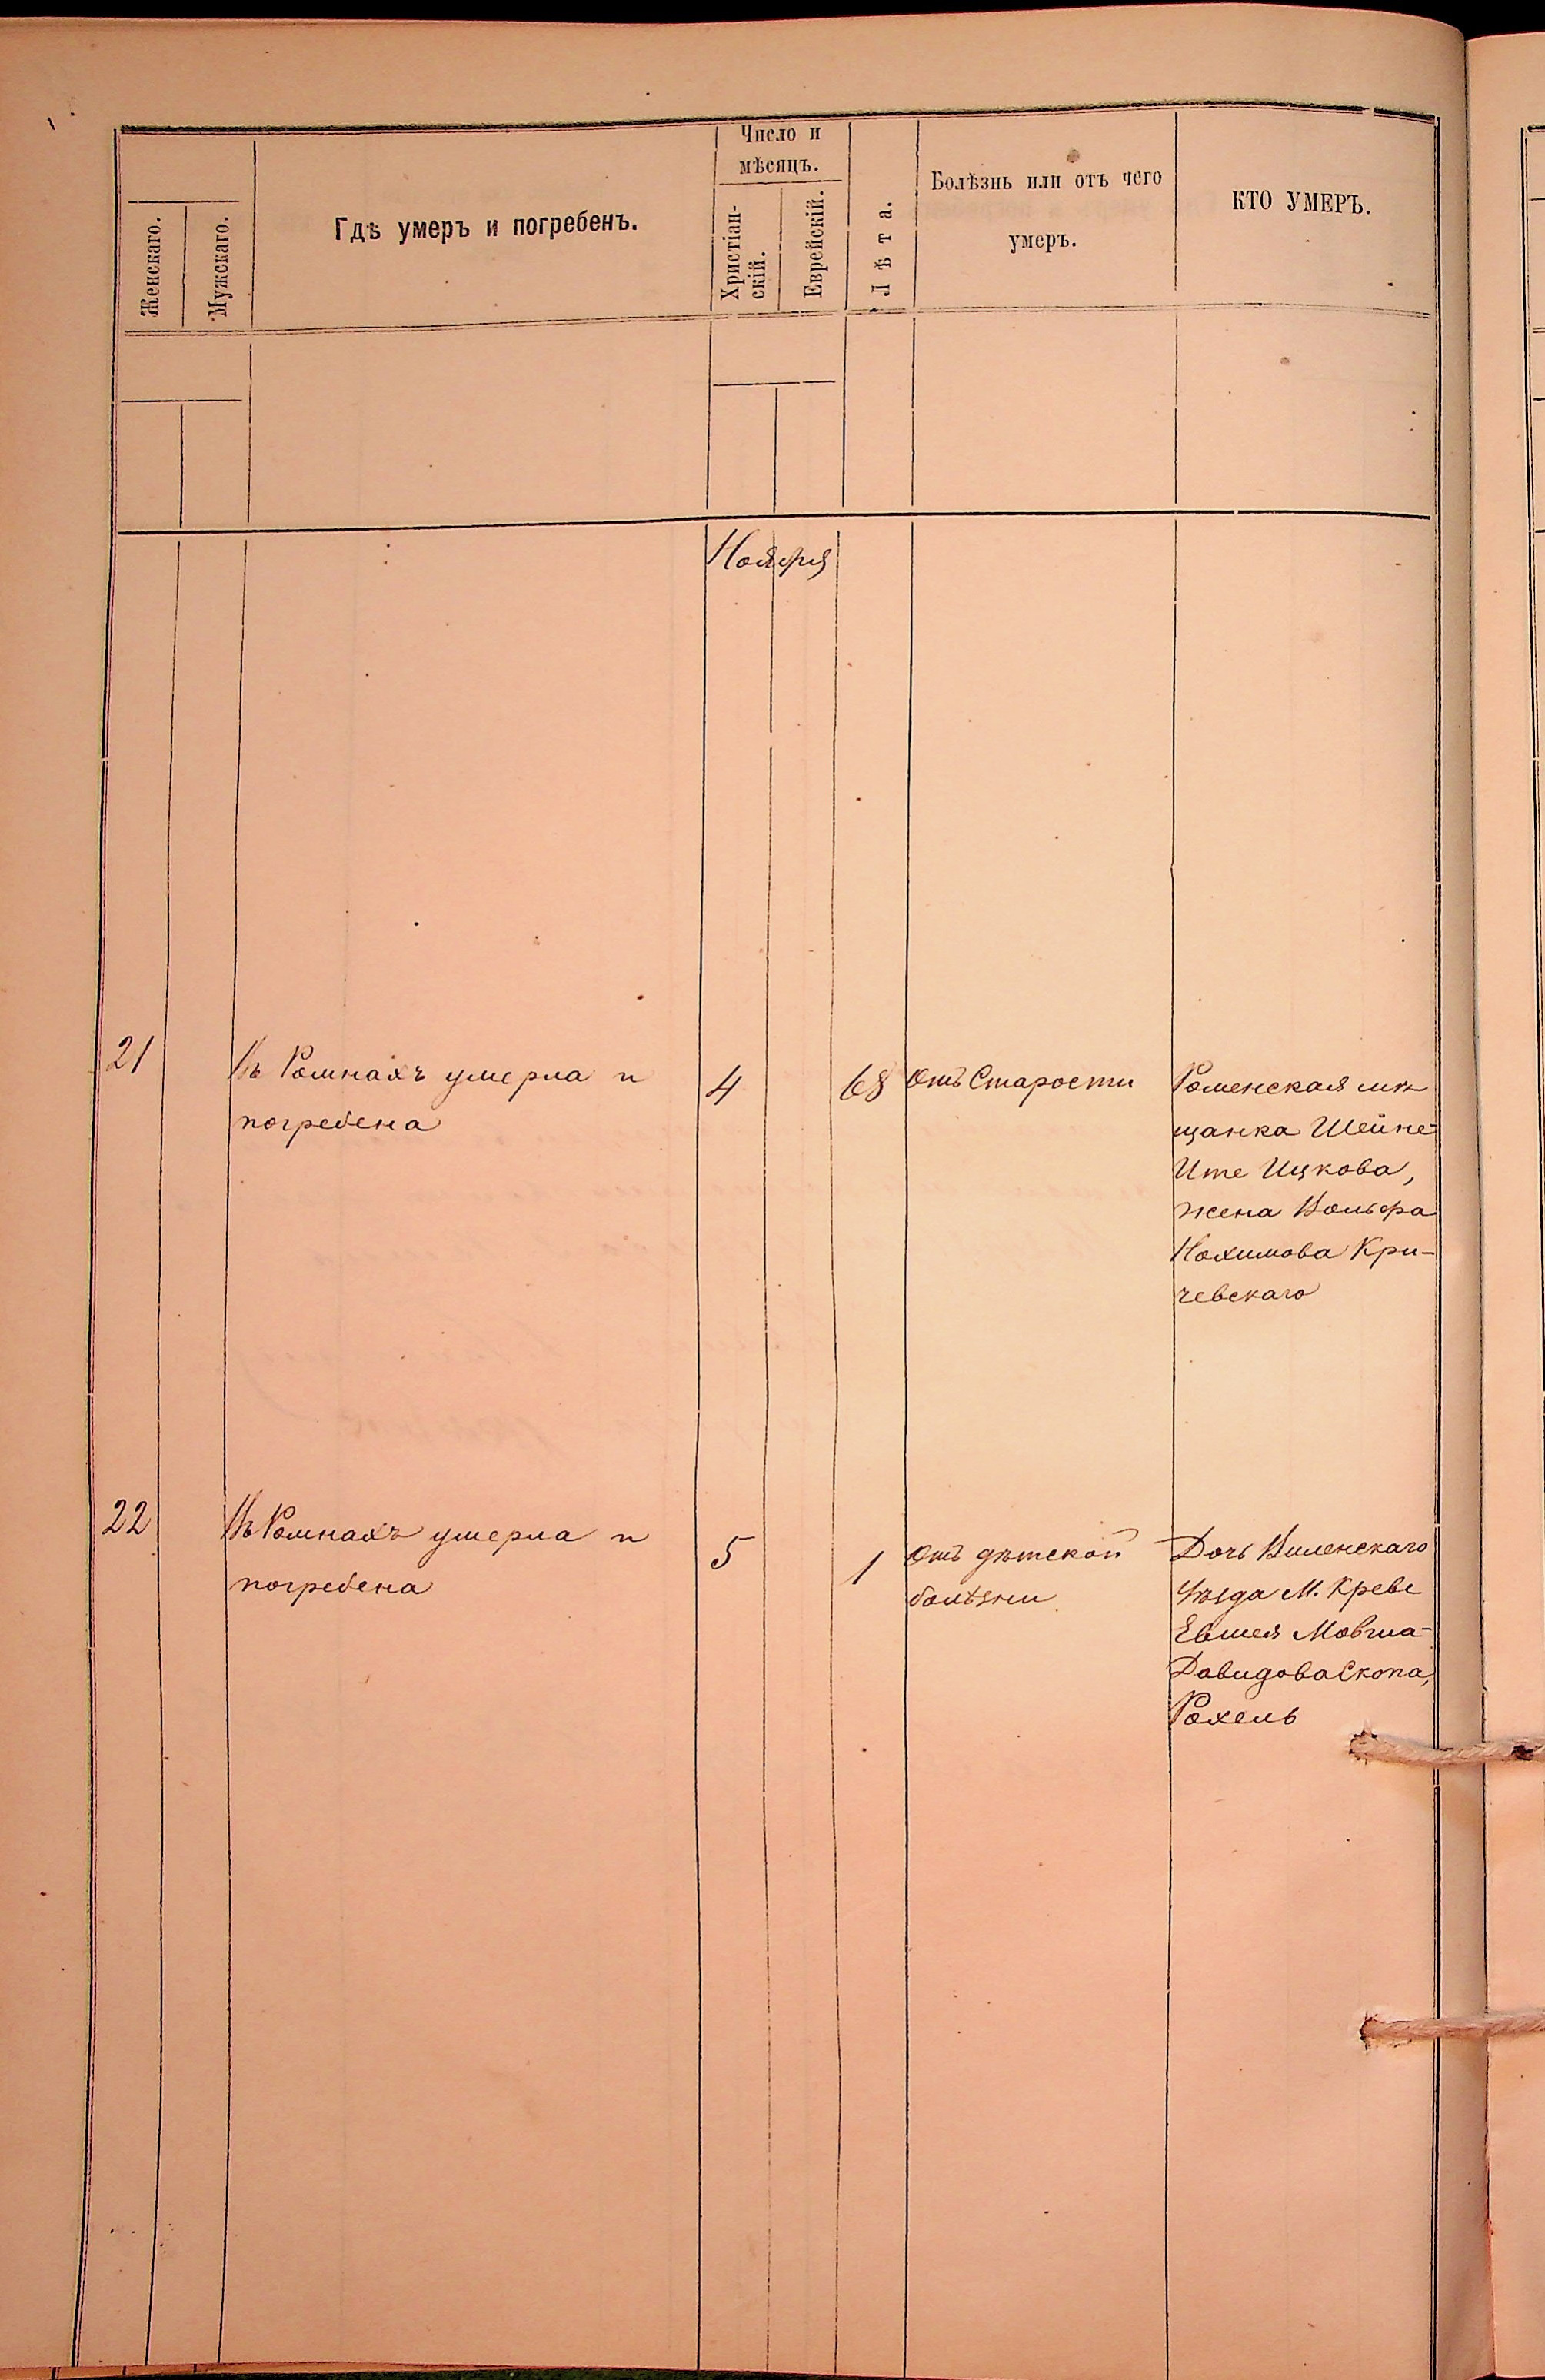 Женскаго.
Мужскаго.
Гдѣ умеръ и погребенъ.
Число и
мѣсяцъ.
Христіан-
скій.
Еврейскій.
Лѣта.
Болѣзнь или отъ чего
умеръ.
КТО УМЕРЪ.
Ноября
21
Въ Ромнахъ умерла и
погребена
4
68
Отъ Старости
Роменская мѣ
щанка Шейне-
Ите Ицкова,
жена Вольфа
Нохимова Кри-
чевскаго
22
Въ Ромнахъ умерла и
погребена
5
1
Отъ дѣтской
болѣзни
Дочь Виленскаго
Уѣзда М. Креве
Мовша-
Давидова Скопа,
Рохель